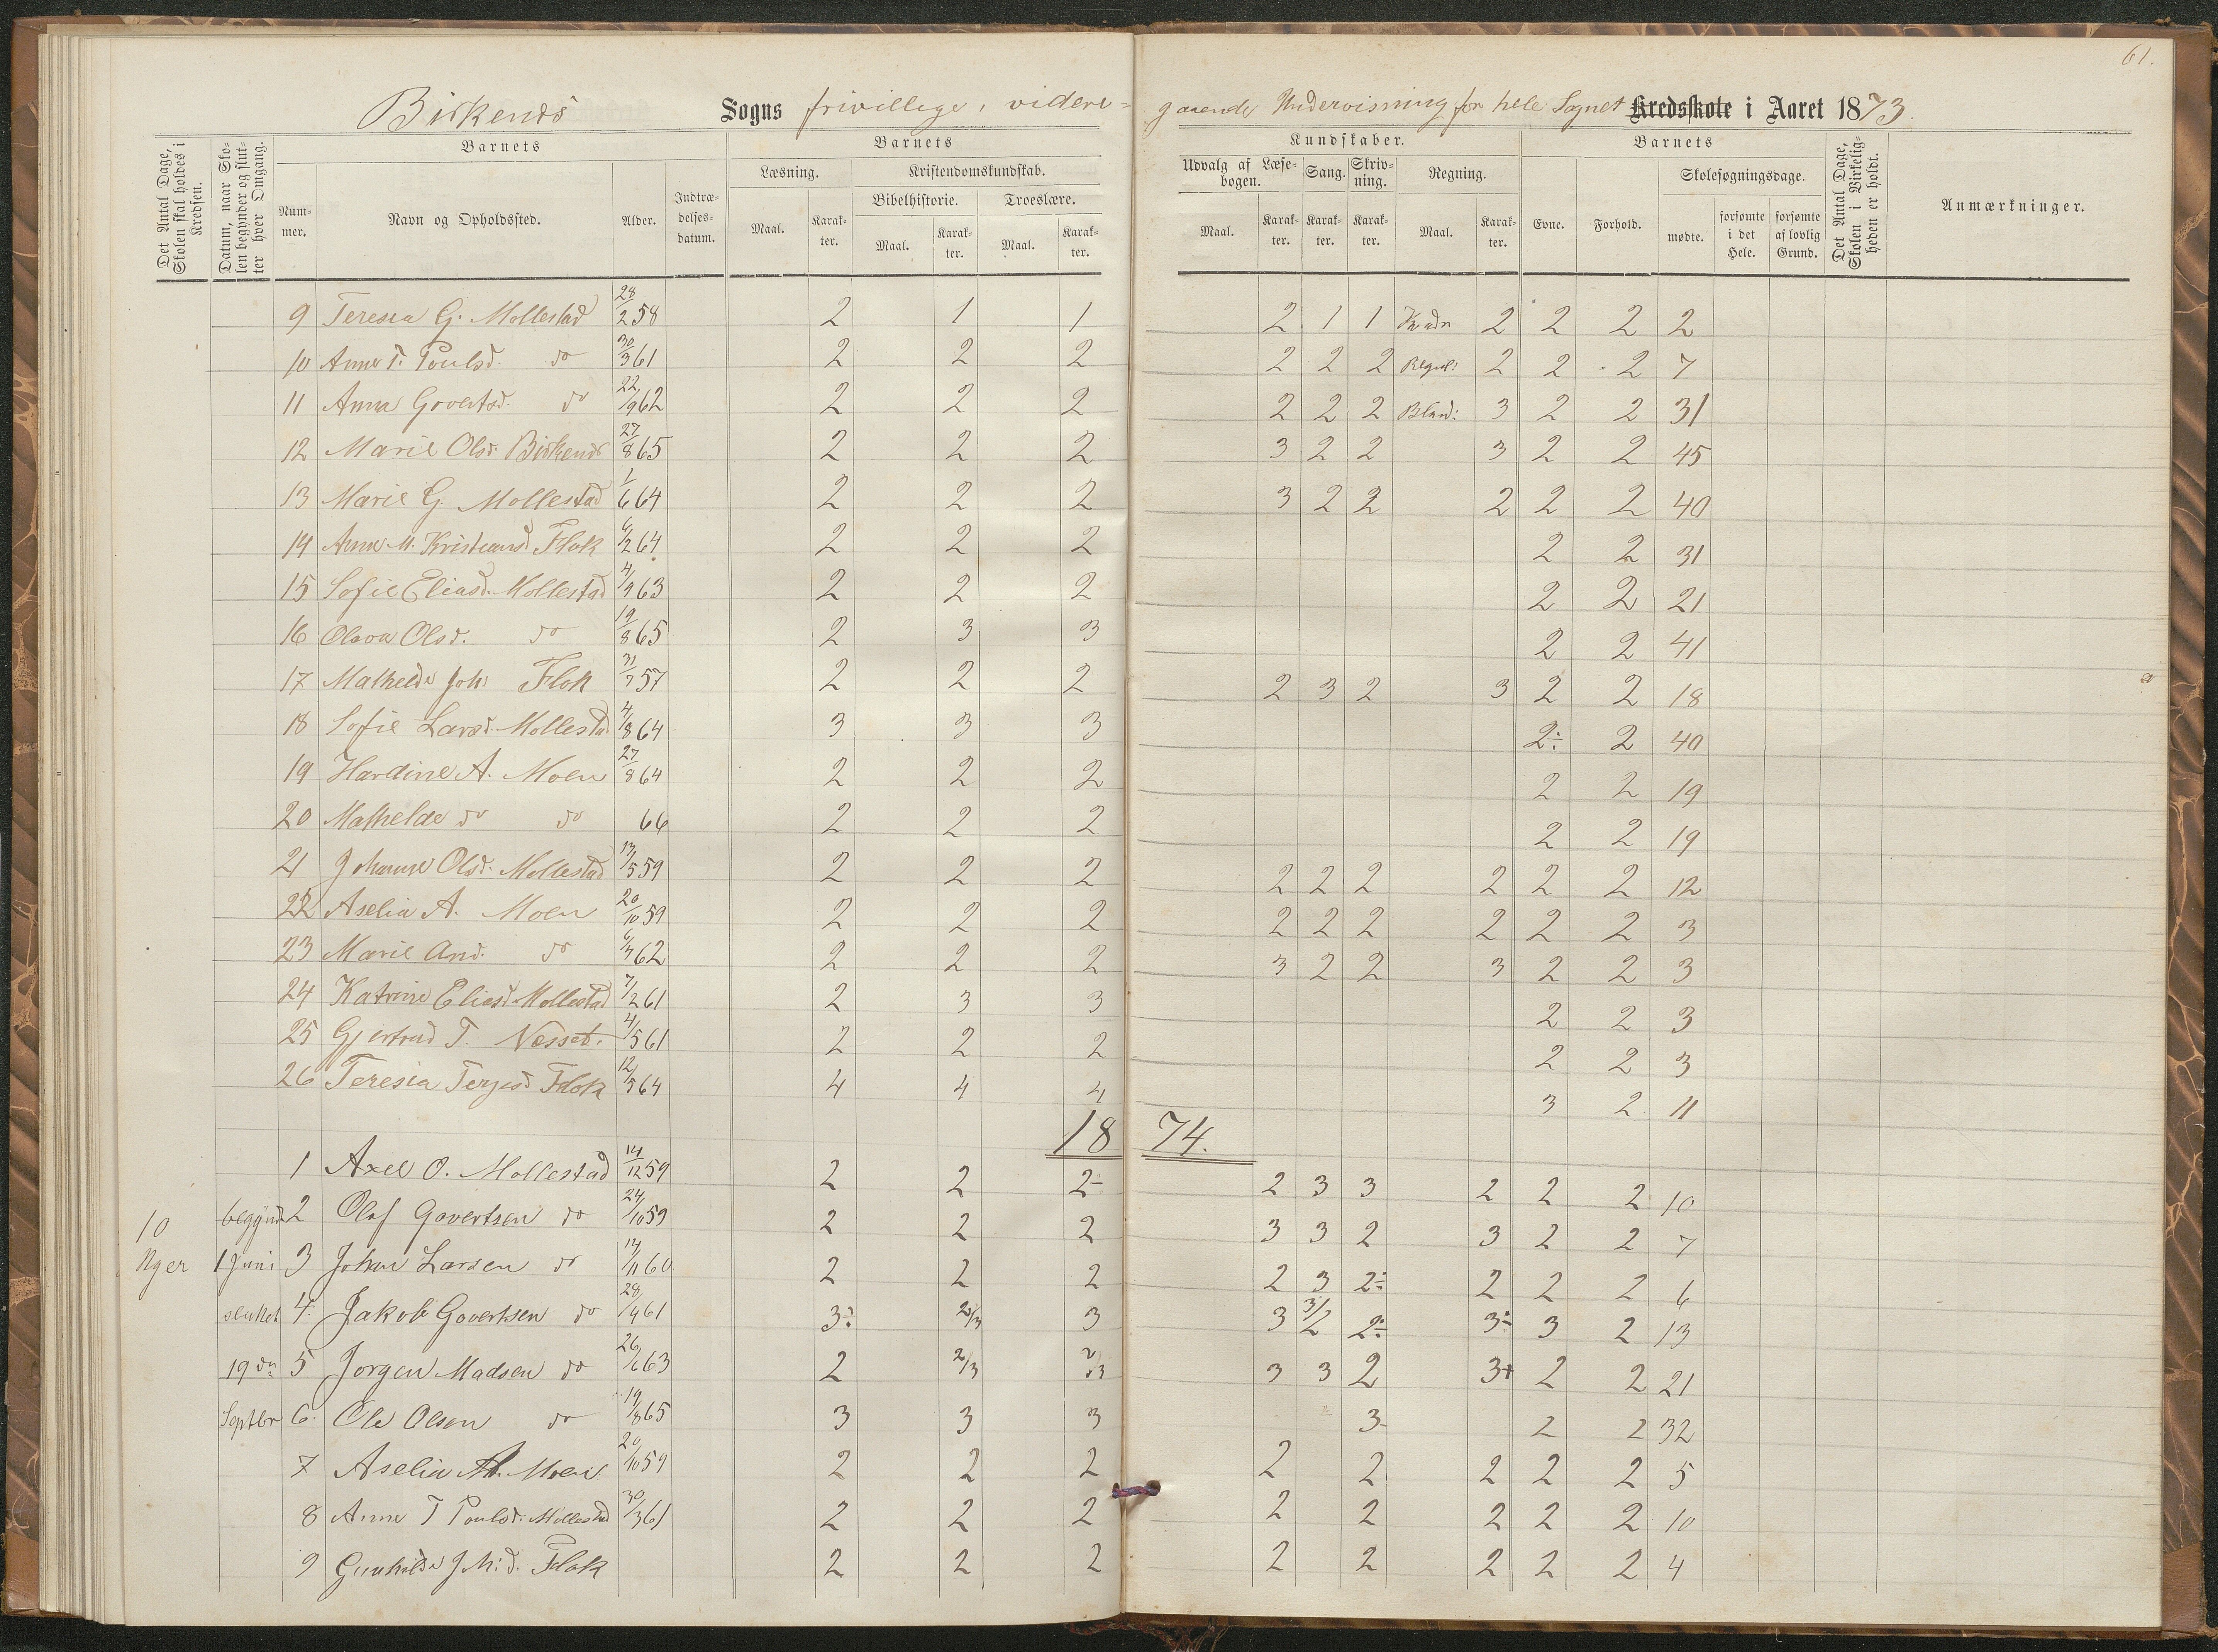 61.
Birkends Sogns frivillige, videre= gaaende Undervisning for hele Sognet Kredsskole i Aaret 1873.
Det Antal Dage, Skolen skal holdes i Kredsen.
Datum, naar Skolen begynder og slutter hver Omgang.
Barnets
Nummer.
Navn og Opholdssted.
Alder.
Indtrædelsesdatum.
Barnets
Læsning.
Maal.
Karakter.
Kristendomskundskab.
Bibelhistorie.
Maal.
Karakter.
Troeslære.
Maal.
Karakter.
Kundskaber.
Udvalg af Læsebogen.
Maal.
Karakter.
Sang.
Karakter.
Skrivning.
Karakter.
Regning.
Maal.
Karakter.
Barnets
Evne.
Forhold.
Skolesøgningsdage.
mødte.
forsømte i det Hele.
forsømte af lovlig Grund.
Det Antal Dage, Skolen i Virkeligheden er holdt.
Anmærkninger.
9 Teresia G. Mollestad 28/2 58 2 1 1 2 1 1 2 2 2 2
10 Anne T. Poulsd. do 30/3 61 2 2 2 2 2 2 Regul: 2 2 2 7
11 Anna Govertsd. do 22/9 62 2 2 2 2 2 2 Bland: 3 2 2 31
12 Marie Olsd. Birkends 27/8 65 2 2 2 3 2 2 3 2 2 45
13 Marie G. Mollestad 1/6 64 2 2 2 3 2 2 2 2 2 40
14 Anne M. Kristiansd Flak 6/2 64 2 2 2 2 2 31
15 Sofie Eliasd. Mollestad 4/9 63 2 2 2 2 2 21
16 Olava Olsd. do 19/8 65 2 3 3 2 2 41
17 Mathelde Joh: Flak 31/7 57 2 2 2 2 3 2 3 2 2 18
18 Sofie Larsd. Mollestad 4/8 64 3 3 3 2÷ 2 40
19 Hardine A. Moen 27/8 64 2 2 2 2 2 19
20 Mathelde do do 66 2 2 2 2 2 19
21 Johanne Olsd. Mollestad 13/5 59 2 2 2 2 2 2 2 2 2 12
22 Aselia A. Moen 20/10 59 2 2 2 2 2 2 2 2 2 3
23 Marie And. do 62 2 2 2 3 2 2 3 2 2 3
24 Katrine Eliasd. Mollestad 7/2 61 2 3 3 2 2 3
25 Gjertrud T. Næsset. 4/5 61 2 2 2 2 2 3
26 Teresia Terjesd Flak 12/5 64 4 4 4 3 2 11
18 74.
1 Axel O. Mollestad 14/12 59 2 2 2- 2 3 3 2 2 2 10
10 begyndt 2 Olaf Govertsen do 24/10 59 2 2 2 3 3 2 3 2 2 7
Uger 1 Juni 3 Johan Larsen do 14/11 60 2 2 2 2 3 2÷ 2 2 2 6
sluttet 4. Jakob Govertsen do 28/4 61 3÷ 2/3 3 3 3/2 2÷ 3÷ 3 2 13
19 do 5 Jorgen Madsen do 26/6 63 2 2/3 2/3 3 3 2 3+ 2 2 21
Septbr 6. Ole Olsen do 19/8 65 3 3 3 3 2 2 32
7 Aselia A. Moen 20/10 59 2 2 2 2 2 2 2 2 5
8 Anne T Poulsd. Mollestad 30/3 61 2 2 2 2 2 2 2 2 10
9 Gunhilde J. M:d. Flak 2 2 2 2 2 2 2 2 4